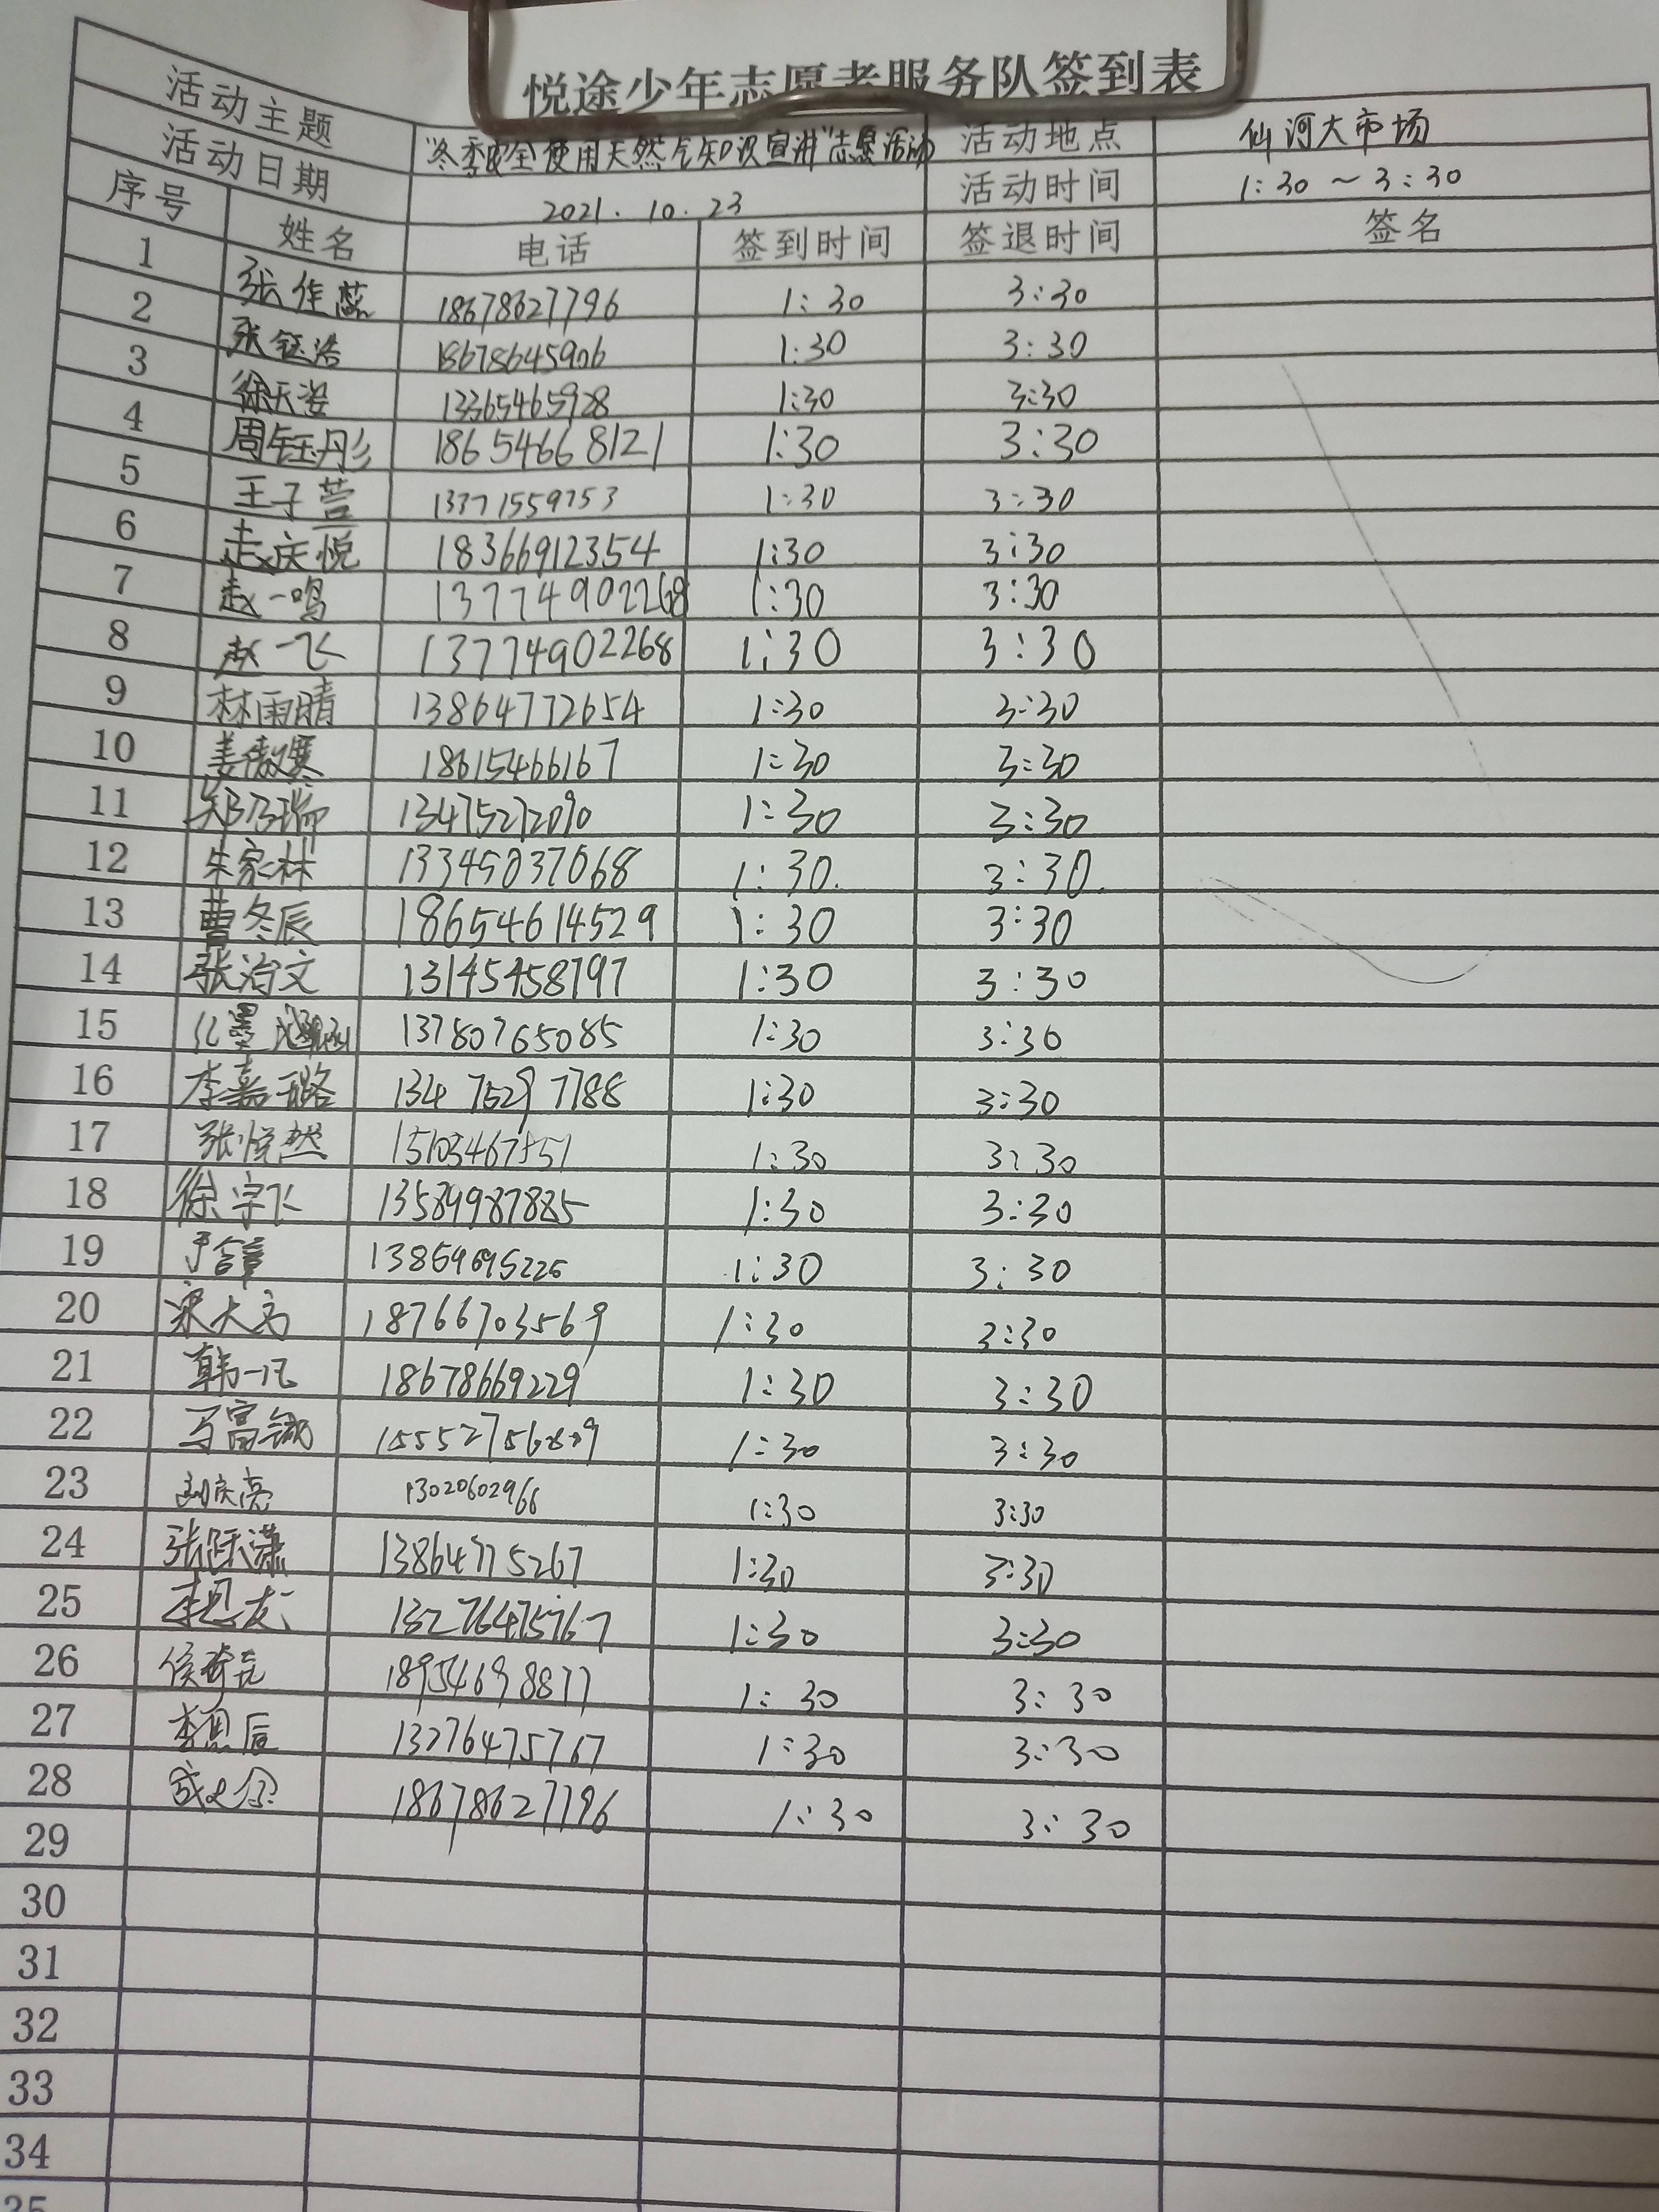 悦途少年志愿者服务队签到表
活动主题 "冬季安全使用天然气知识宣讲"志愿活动 活动地点 仙河大市场
活动日期 2021.10.23 活动时间 1:30~3:30
序号 姓名 电话 签到时间 签退时间 签名
1 张佳蕊 18678627796 1:30 3:30
2 张钰浩 18678645906 1:30 3:30
3 徐天姿 13365465928 1:30 3:30
4 周钰彤 18654668121 1:30 3:30
5 王子萱 13371559753 1:30 3:30
6 赵庆悦 18366912354 1:30 3:30
7 赵一鸣 13774902268 1:30 3:30
8 赵一飞 13774902268 1:30 3:30
9 林雨晴 13864772654 1:30 3:30
10 姜傲寒 18615466167 1:30 3:30
11 郑乃瑞 13475272090 1:30 3:30
12 朱家林 13345037068 1:30. 3:30.
13 曹冬辰 18654614529 1:30 3:30
14 张治文 13145458797 1:30 3:30
15 13780765085 1:30 3:30
16 李嘉璐 13475297788 1:30 3:30
17 张悦然 1:30 3:30
18 徐宇飞 13589987885 1:30 3:30
19 于含章 1:30 3:30
20 18766703569 1:30 3:30
21 韩一凡 18678669229 1:30 3:30
22 马富 1:30 3:30
23 刘庆亮 13020602966 1:30 3:30
24 张跃潇 13864775267 1:30 3:30
25 李思友 13276475767 1:30 3:30
26 侯奇元 18954698877 1:30 3:30
27 李思后 13276475767 1:30 3:30
28 18678627796 1:30 3:30
29
30
31
32
33
34
35